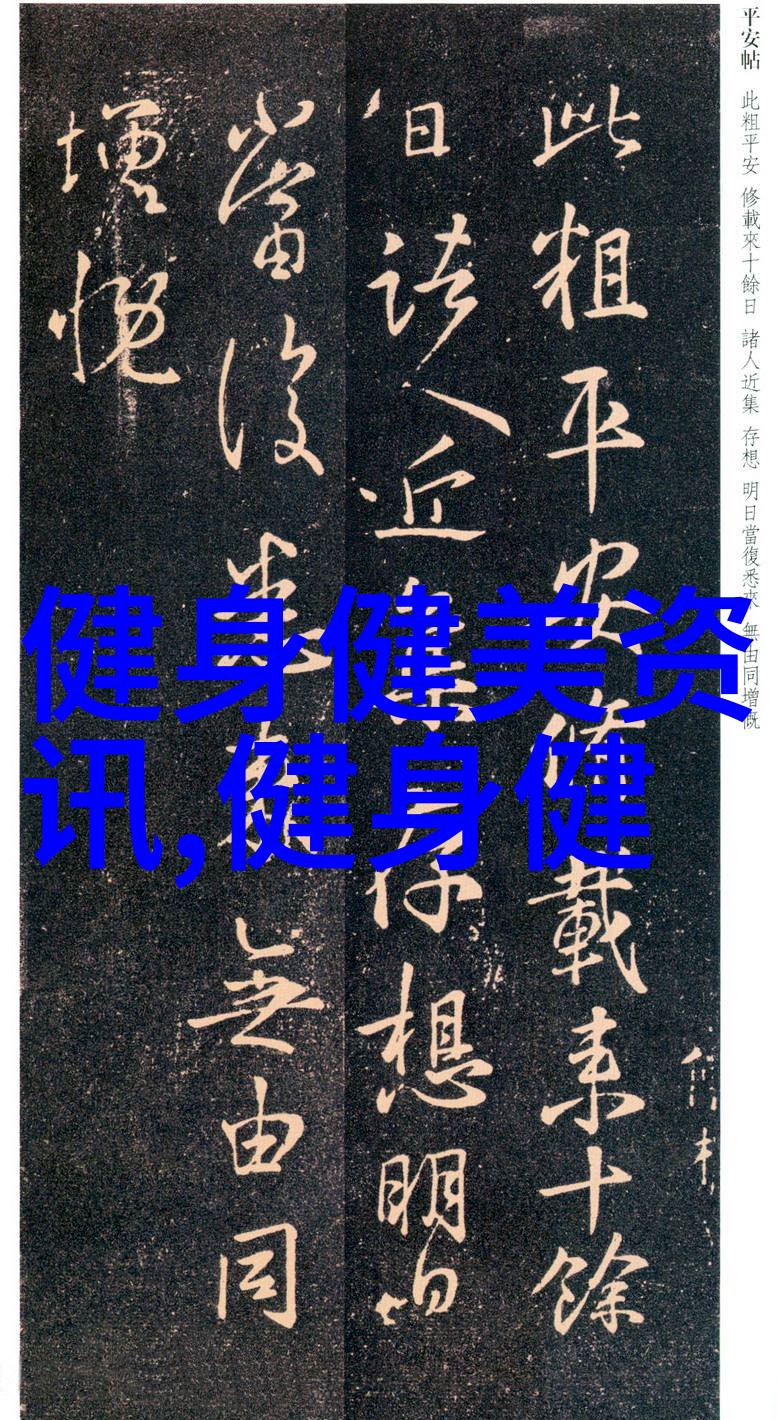 平安帖 此粗平安 修載來十餘日 諸人近集 存想 明日當復悉來 無由同增慨
此粗平安脩載來十餘
日諸人近集存想明日
當復悉來無由同
增慨
健身健美资
讯,健身健